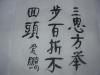 三思方举
步百折不
回頭